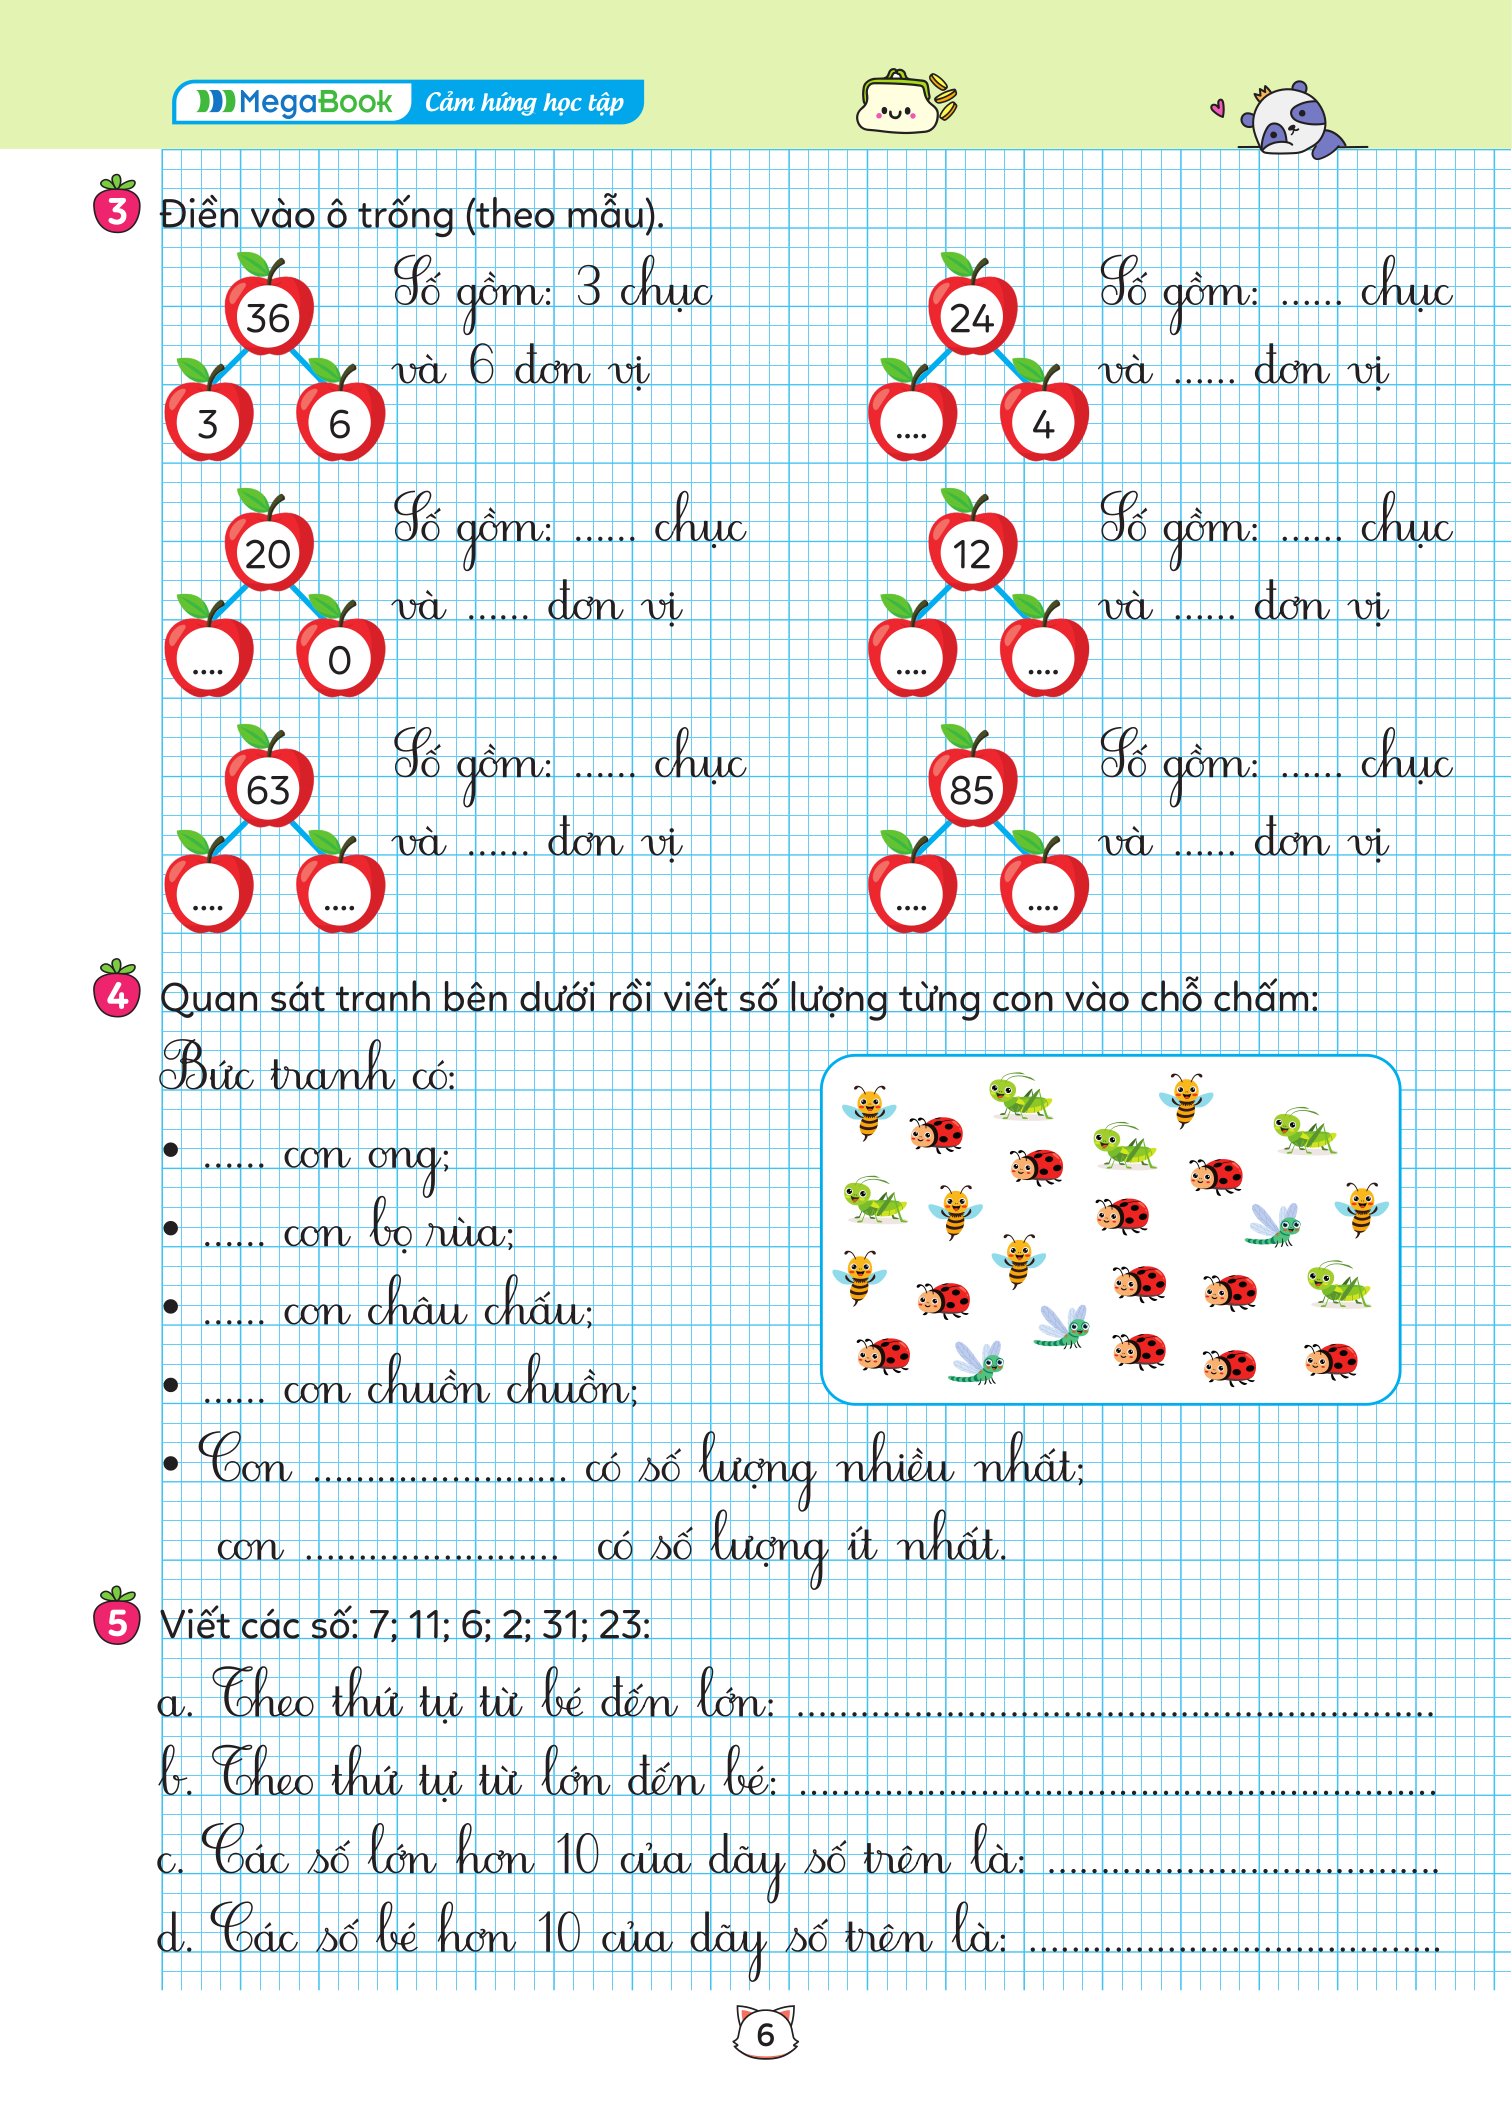 MegaBook Cảm hứng học tập
3 Điền vào ô trống (theo mẫu).
36
3
6
Số gồm: 3 chục
và 6 đơn vị
24
....
4
Số gồm: ...... chục
và ...... đơn vị
20
....
0
Số gồm: ...... chục
và ...... đơn vị
12
....
....
Số gồm: ...... chục
và ...... đơn vị
63
....
....
Số gồm: ...... chục
và ...... đơn vị
85
....
....
Số gồm: ...... chục
và ...... đơn vị
4 Quan sát tranh bên dưới rồi viết số lượng từng con vào chỗ chấm:
Bức tranh có:
• ...... con ong;
• ...... con bọ rùa;
• ...... con châu chấu;
• ...... con chuồn chuồn;
• Con ........................ có số lượng nhiều nhất;
con ........................ có số lượng ít nhất.
5 Viết các số: 7; 11; 6; 2; 31; 23:
a. Theo thứ tự từ bé đến lớn: ............................................................
b. Theo thứ tự từ lớn đến bé: ............................................................
c. Các số lớn hơn 10 của dãy số trên là: .....................................
d. Các số bé hơn 10 của dãy số trên là: .......................................
6